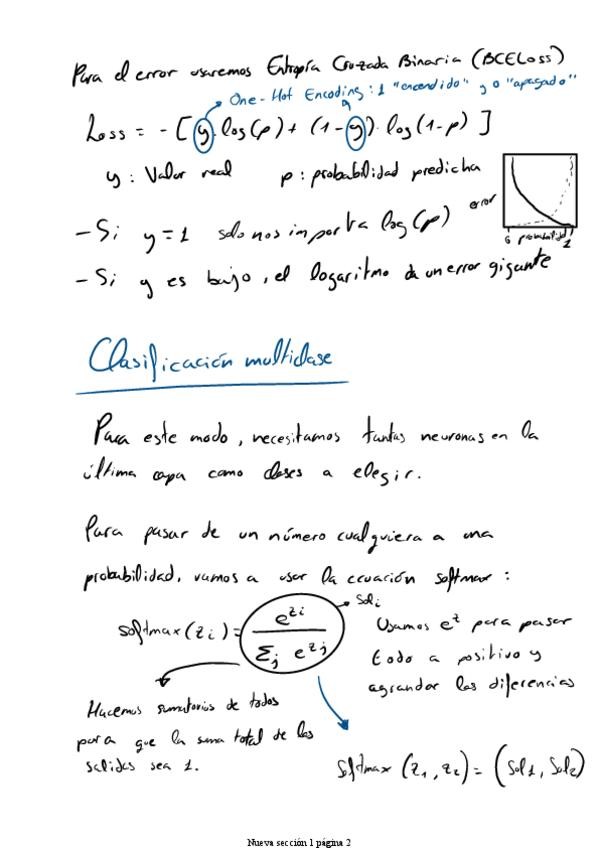 Para el error usaremos Entropía Cruzada Binaria (BCELoss)
One-Hot Encoding: 1 "encendido" y 0 "apagado"
Loss = - [y·log(p) + (1-y)·log(1-p)]
y: Valor real    p: probabilidad predicha
error
0 probabilidad 1
- Si y=1 solo nos importa log(p)
- Si y es bajo, el logaritmo da un error gigante
Clasificación multiclase
Para este modo, necesitamos tantas neuronas en la
última capa como clases a elegir.
Para pasar de un número cualquiera a una
probabilidad, vamos a usar la ecuación softmax:
softmax(zi) = e^zi / Σj e^zj
Soli
Usamos e^z para pasar
todo a positivo y
agrandar las diferencias
Hacemos sumatorios de todos
para que la suma total de las
salidas sea 1.
Softmax (z1, z2) = (Sol1, Sol2)
Nueva sección 1 página 2